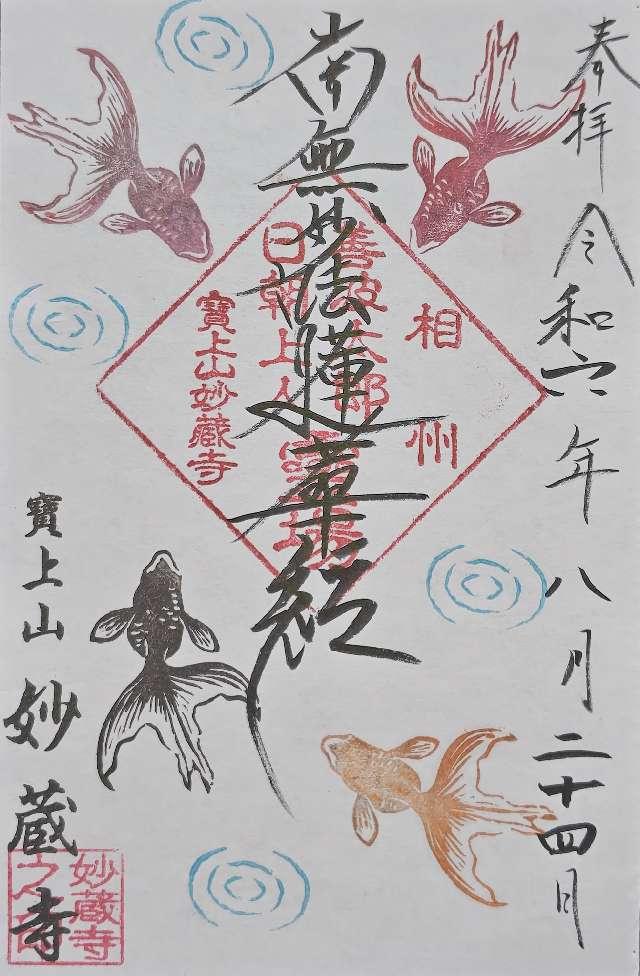 奉拝 令和六年 八月二十四日
相州
善波太郎
南無妙法蓮華経
日朝上人
霊場
寶上山妙藏寺
寶上山 妙蔵寺
妙蔵寺
之印